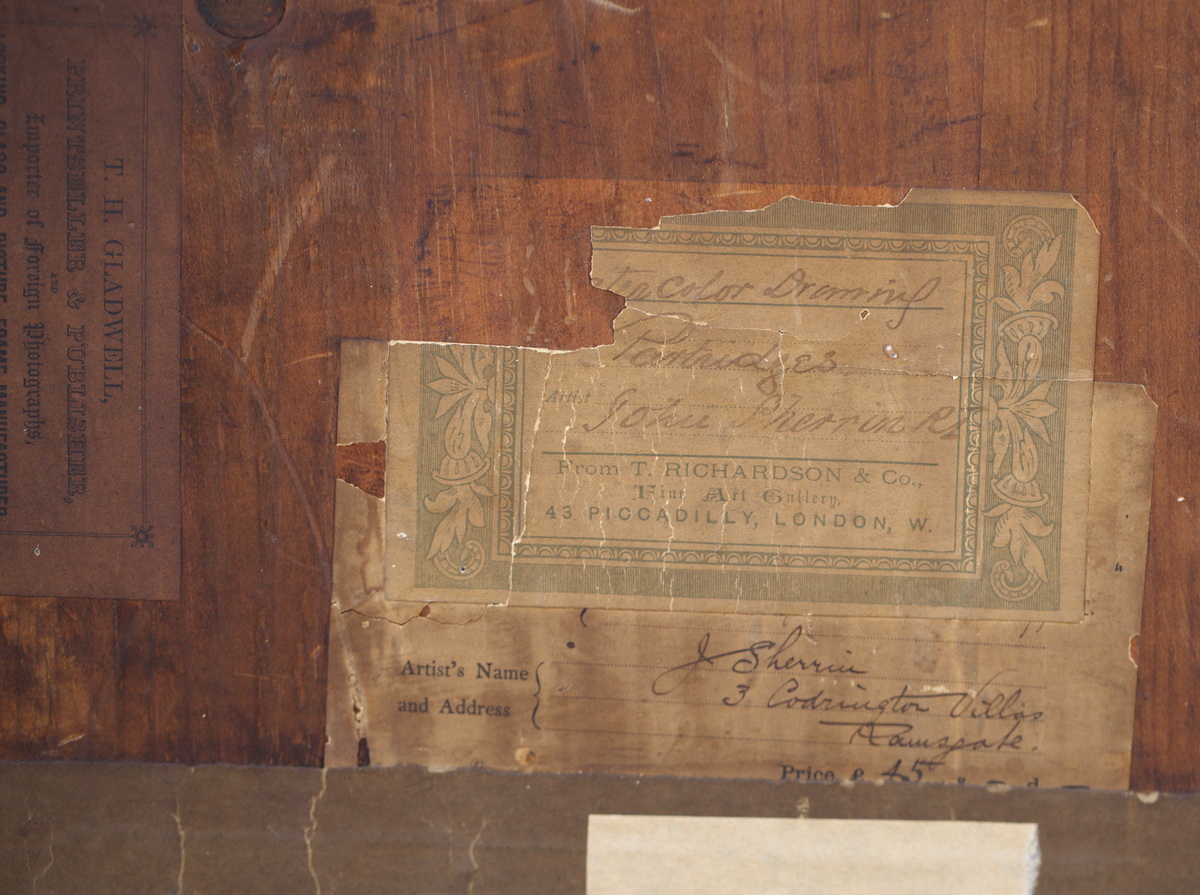 T. H. GLADWELL,
PRINTSELLER & PUBLISHER,
AND
Importer of Foreign Photographs,
LOOKING GLASS AND PICTURE FRAME MANUFACTURER
Color Drawing
Partridges
Artist John Sherrin RI
From T. RICHARDSON & Co.,
Fine Art Gallery,
43 PICCADILLY, LONDON, W.
J Sherrin
Artist's Name
3 Codrington Villas
and Address
Ramsgate.
Price £ 45 s — d —